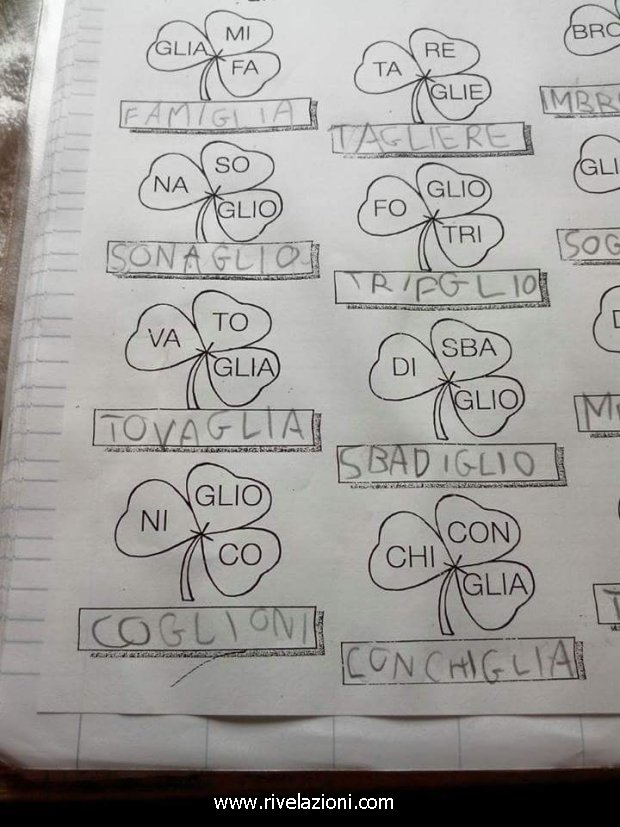 GLIA MI FA
FAMIGLIA
TA RE GLIE
TAGLIERE
BRO
IMBR
NA SO GLIO
SONAGLIO
FO GLIO TRI
GLI
SOG
VA TO GLIA
TOVAGLIA
DI SBA GLIO
SBADIGLIO
NI GLIO CO
COGLIONI
CHI CON GLIA
CONCHIGLIA
www.rivelazioni.com